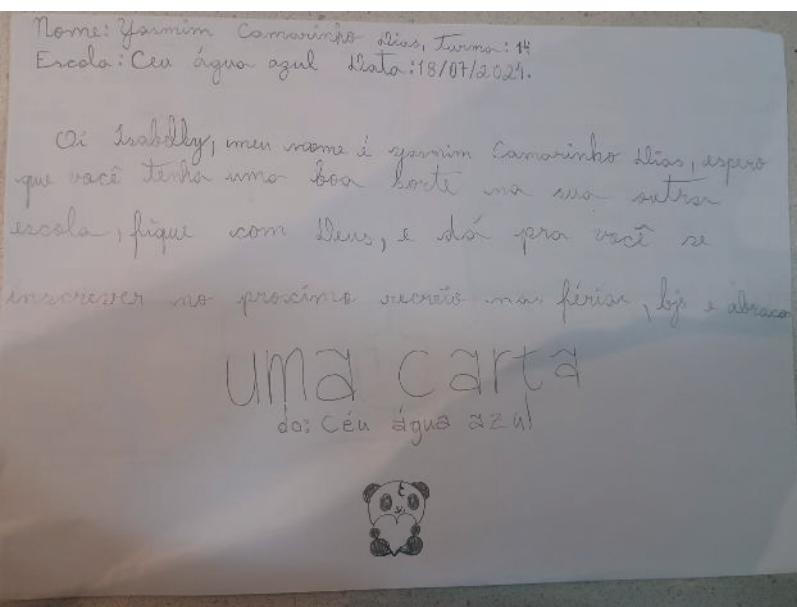 Nome: Yasmim Camarinho Dias, turma: 14
Escola: Ceu água azul Data: 18/07/2024.
Oi Isabelly, meu nome é yasmim Camarinho Dias, espero
que você tenha uma boa sorte na sua outra
escola, fique com Deus, e dá pra você se
inscrever no proximo recreio nas férias, bjs e abraços
uma carta
do: Céu água azul